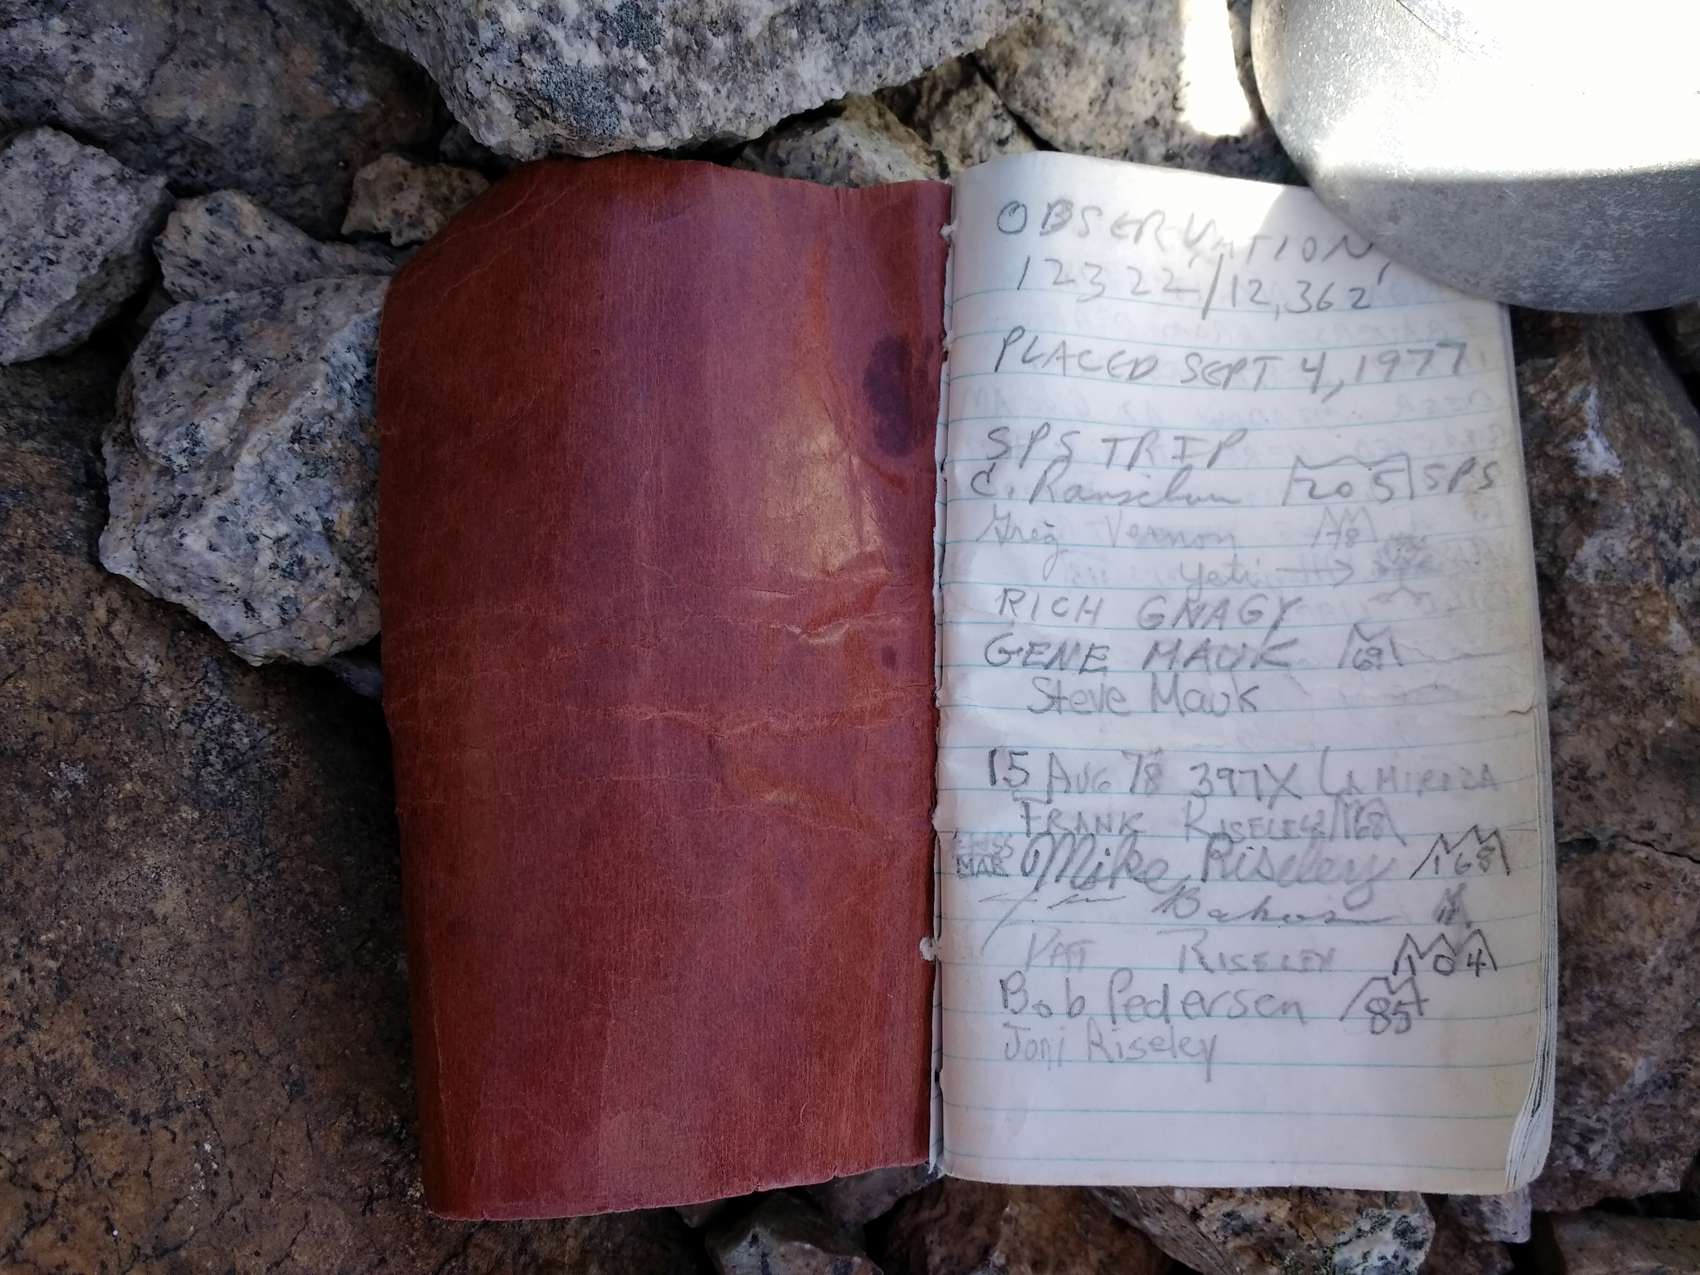 OBSERVATION,
12322/12,362'
PLACED SEPT 4, 1977
SPS TRIP
C. 205 SPS
Greg Vernon 78
Yeti →
RICH GNAGY
GENE MAUK 69
Steve Mauk
15 AUG 78 397X LA MIRADA
FRANK RISELEY 168
Mike Riseley 168
PAT RISELEY 104
Bob Pedersen 85
Joni Riseley